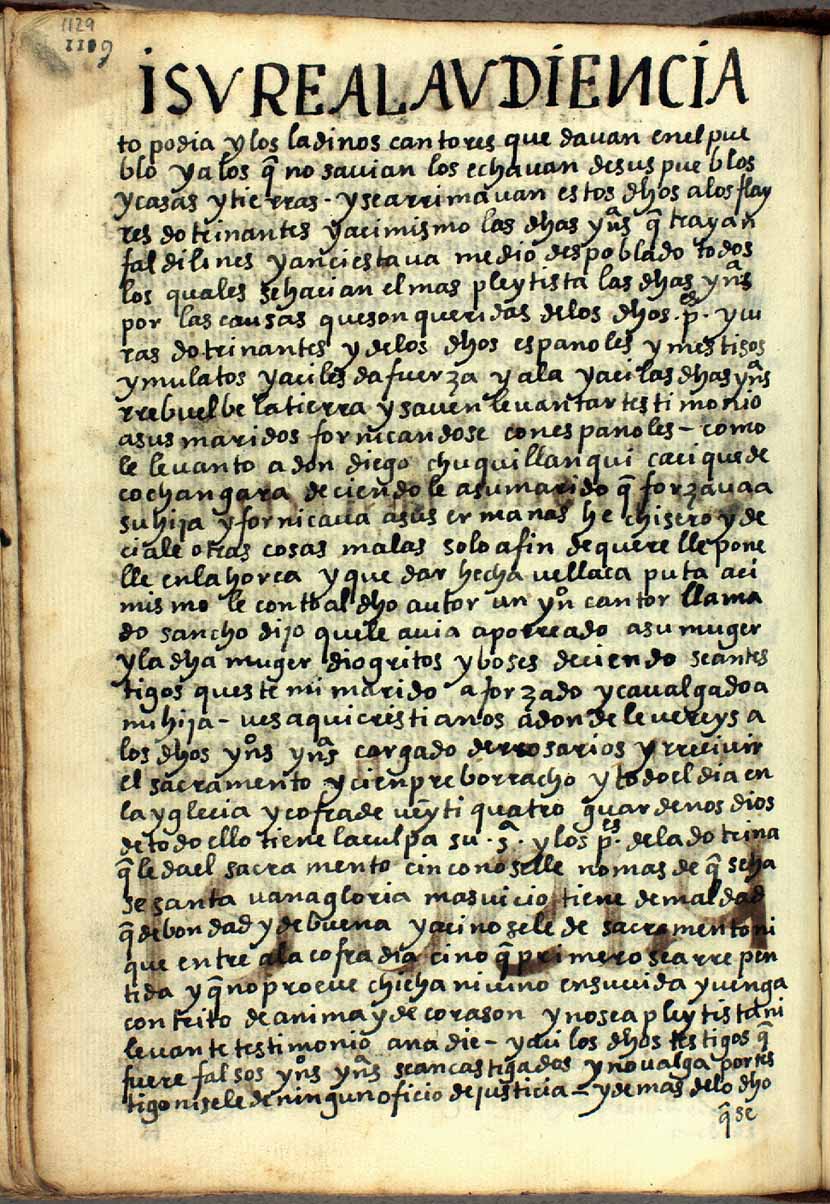 1129
1119
iSV REAL AVDiENCiA
to podia y los ladinos cantores que davan en el pue
blo y a los q̃ no savian los echavan de sus pueblos
y casas y tierras - y se arrimavan estos dhos a los flay
res dotrinantes y acimismo las dhas ynas q̃ trayan
faldilines y anci estava medio despoblado todos
los quales se hacian el mas pleytista las dhas ynas
por las causas que son queridas de los dhos · pes · y cu
ras dotrinantes y de los dhos españoles y mestisos
y mulatos y aci les da fuerza y ala y aci las dhas ynas
rrebuelbe la tierra y saven levantar testimonio
a sus maridos fornicandose con españoles - como
le levanto a don diego chuquillanqui cacique de
cochangara deciendole a su marido q̃ forzava a
su hija y fornicava a sus ermanas hechisero y de
ciale otras cosas malas solo a fin de querelle pone
lle en la horca y quedar hecha vellaca puta aci
mismo le conto al dho autor un yno cantor llama
do sancho dijo que le avia aporreado a su muger
y la dha muger dio gritos y boses deciendo seants
tigos queste mi marido a forzado y cavalgado a
mi hija - ves aqui cristianos adonde le vereys a
los dhos ynos ynas cargado de rrosarios y rrecivir
el sacramento y cienpre borracho y todo el dia en
la yglecia y cofrade veynti quatro guardenos dios
de todo ello tiene la culpa su · sa · y los pes · de la dotrina
q̃ le da el sacramento cin conoselle no mas de q̃ se ha
se santa vanagloria mas vicio tiene de maldad
q̃ de bondad y de buena y aci no se le de sacramento ni
que entre a la cofradia cino q̃ primero se arrepen
tida y q̃ no proeve chicha ni vino en su vida y venga
contrito de anima y de corason y no sea pleytista ni
levante testimonio a nadie - y aci los dhos testigos q̃
fuere falsos ynos ynas sean castigados y no valga por tes
tigo ni se le de ningun oficio de justicia - y demas de lo dho
q̃ se